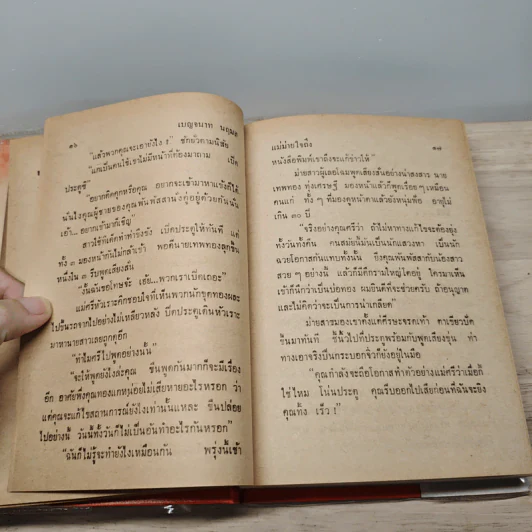 ๑๖
เบญจมาท นฤมล
"แล้วพวกคุณจะเอายังไง !" ชักยัวตามนิสัย
"แกเป็นคนใช้เขาไม่มีหน้าที่ต้องมาถาม เปิด
ประตูซิ"
"อยากคิดคุกหรือคุณ อยากจะเข้ามาหาแข้งก็ได้
นั่นไงคุณผู้ชายของคุณพันพัสสานงคู่อยู่ด้วยกันนั่น
เอ้า... อยากเข้ามาก็เชิญ"
สาวใช้เท้ทำท่าขึงขัง เปิดประตูให้ทันที แต่
ทั้ง ๓ มองหน้ากันไม่กล้าเข้า พอดีนายเทพทองลุกขึ้น
หนึ่งใน ๓ รีบพูดเสียงสั่น
"งั้นฉันขอโทษจ้ะ เฮ้ย...พวกเราเปิดเถอะ"
แม่ศรีหัวเราะคิกชอบใจที่เห็นพวกนักขุดทองเผละ
ไปขึ้นรถจากไปอย่างไม่เหลียวหลัง ปิดประตูเดินหัวเราะ
มาหานายสาวเลยถูกดุอีก
"ทำไมศรีไปพูดอย่างนั้น"
"จะให้พูดยังไงล่ะคุณ ขืนพูดกันมากก็จะมีเรื่อง
อีก อาศัยพึ่งคุณทองแกหน่อยไม่เสียหายอะไรหรอก ว่า
แต่คุณจะแก้ไขสถานการณ์ยังไงเท่านั้นแหละ ขืนปล่อย
ไปอย่างนี้ วันนี้ทั้งวันก็ไม่เป็นอันทำอะไรกันหรอก"
"ฉันก็ไม่รู้จะทำยังไงเหมือนกัน พรุ่งนี้เช้า
แม่ม่ายใจถึง
๑๗
หนังสือพิมพ์เขาถึงจะแก้ข่าวให้"
ม่ายสาวผู้เลอโฉมพูดเสียงสั่นอย่างน่าสงสาร นาย
เทพทอง ทุ่งเศรษฐี มองหน้าแล้วก็พูดเรื่อยๆเหมือน
คนแก่ ทั้ง ๆ ที่มองดูหน้าตาแล้วยังหนุ่มฟ้อ อายุไม่
เกิน ๓๐ ปี
"จริงอย่างคุณศรีว่า ถ้าไม่หาทางแก้ไขจะต้องยุ่ง
ทั้งวันทั้งคืน คนสมัยนี้ม่าเป็นนักแสวงหา เป็นนัก
ฉวยโอกาสกันแทบทั้งนั้น ยิ่งคุณพันพัสสากับน้องสาว
สวยๆ อย่างนี้ แล้วก็มีคึกรามใหญ่โตอยู่ ใครมาเห็น
เข้าก็นึกว่าเป็นบ่อทอง ผมยินดีที่จะช่วยครับ ถ้าอนุญาต
และไม่คิดว่าจะเป็นการน่าเกลียด"
ม่ายสาวมองเขาตั้งแต่ศีรษะจรดเท้า ตาเขียวปัด
ขึ้นมาทันที ชี้นิ้วไปที่ประตูพร้อมกับพูดเสียงขุ่น ท่า
ทางเอาจริงปืนกระบอกจิ๋วก็ยังอยู่ในมือ
"คุณกำลังจะถือโอกาสทำตัวอย่างแม่ศรีว่าเมื่อกี้
ใช่ไหม โน่นประตู คุณรีบออกไปเสียก่อนที่ฉันจะยิง
คุณทิ้ง เร็ว !"